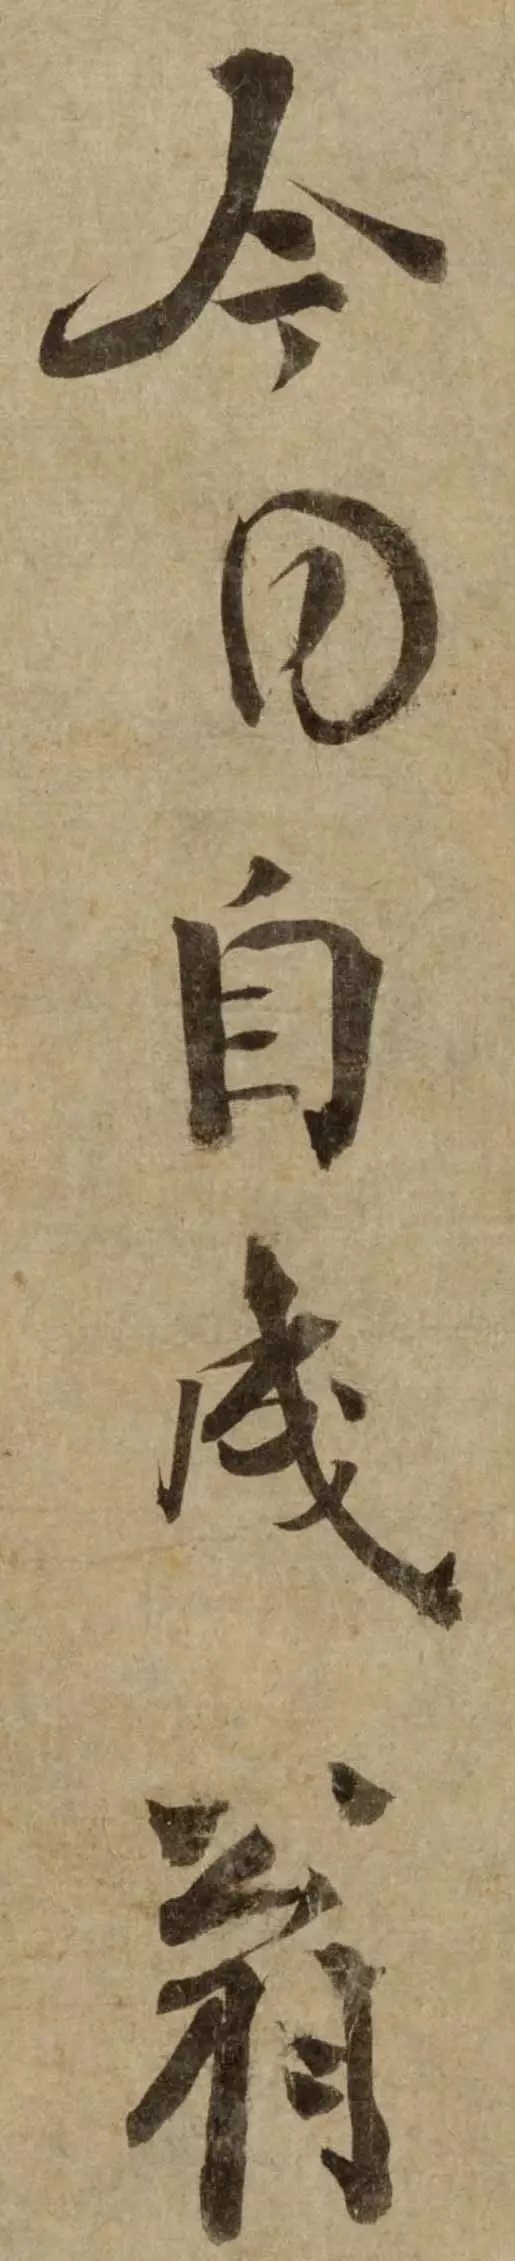 今日自成翁